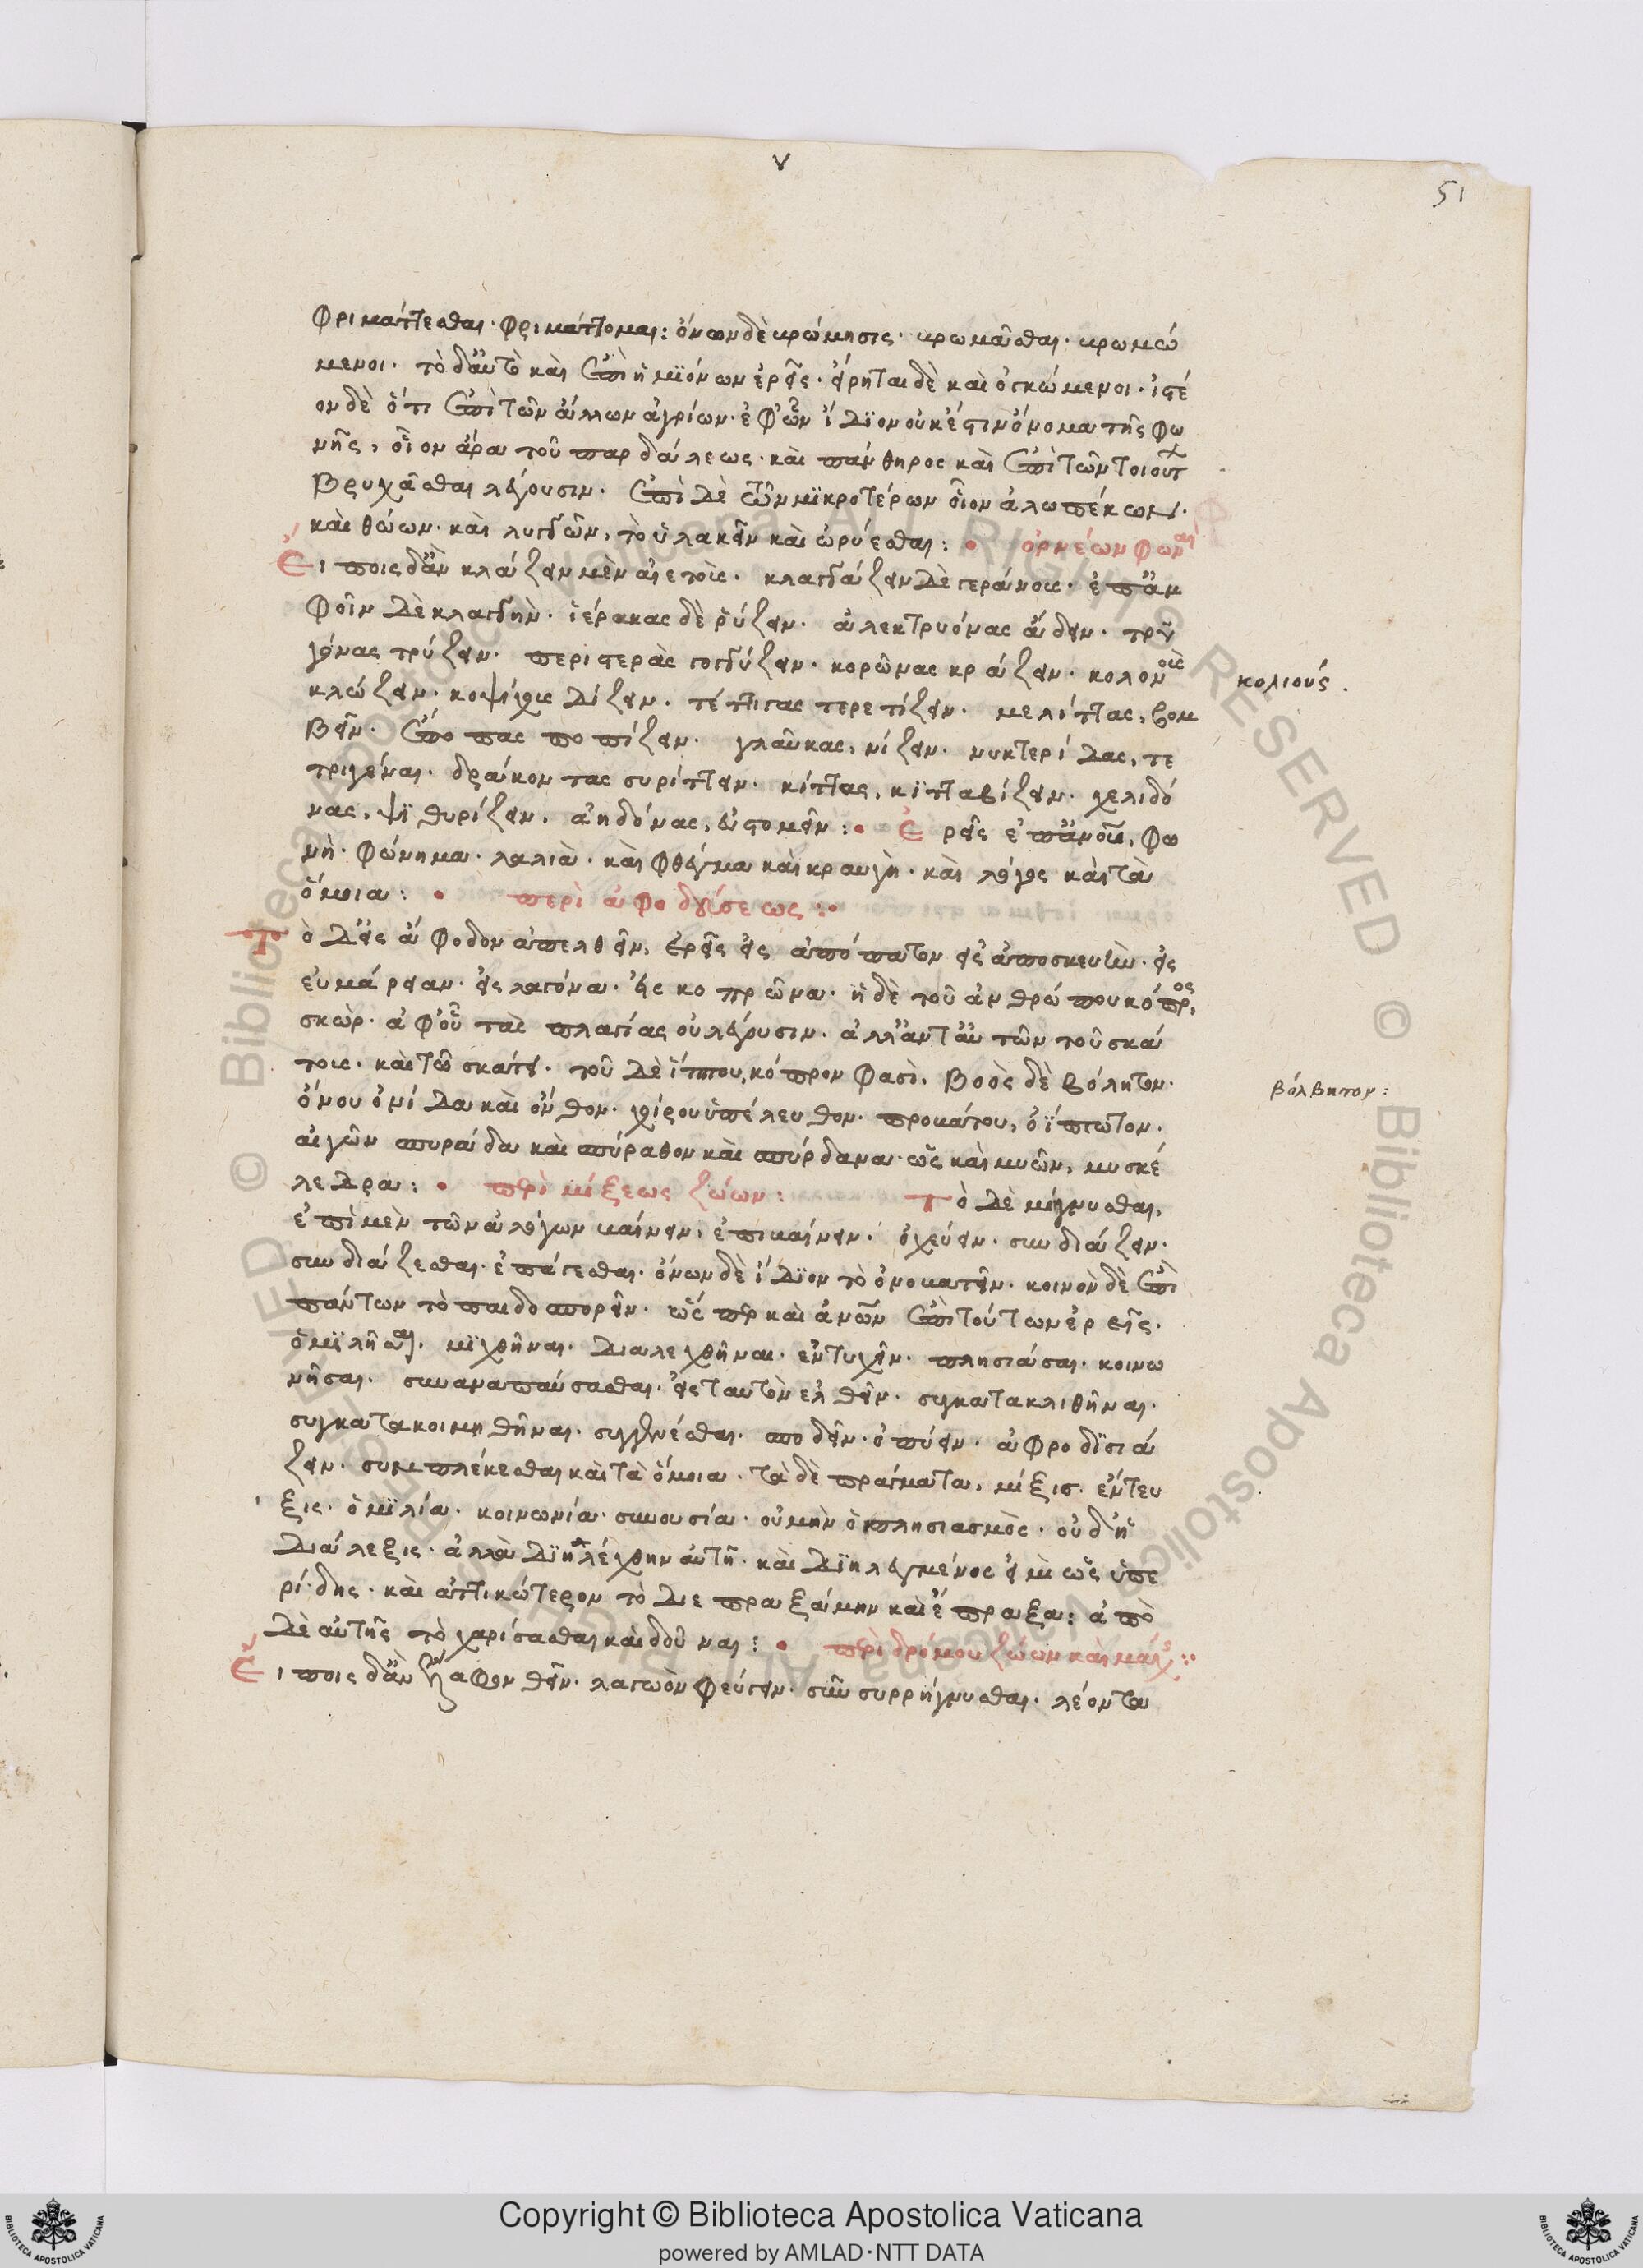 ν
51
φριμάττεσθαι· φριμάττομαι: ὄνων δὲ κρώμησις· κρωμᾶσθαι· κρωμώ
μενοι· τὸ δ' αὐτὸ καὶ ἐπὶ ἡμϊόνων ἐρεῖς· εἴρηται δὲ καὶ ὀγκώμενοι· ἰστέ
ον δὲ ὅτι ἐπὶ τῶν ἄλλων ἀγρίων· ἐφ' ὧν ἴδϊον οὐκ ἔστιν ὄνομα τῆς φω
νῆς, οἷον ἄρα τοῦ παρδάλεως· καὶ πάνθηρος καὶ ἐπὶ τῶν τοιούτ
βρυχᾶσθαι λέγουσιν· ἐπὶ δὲ τῶν μϊκροτέρων οἷον ἀλωπέκων·
καὶ θώων· καὶ λυγγῶν, τὸ ὑλακτεῖν καὶ ὠρύεσθαι: • ὀρνέων φωναί
Εἴποις δ' ἂν κλάζειν μὲν ἀετοὺς· κλαγγάζειν δὲ γεράνους· ἐπ' ἀμ
φοῖν δὲ κλαγγὴν· ἱέρακας δὲ ῥύζειν· ἀλεκτρυόνας ᾄδειν· τρυ
γόνας τρύζειν· περιστερὰς γογγύζειν· κορώνας κράζειν· κολοιοὺς
κολιούς.
κλώζειν· κοψίχους δίζειν· τέττιγας τερετίζειν· μελίττας, βομ
βεῖν· ἔποπας ποπίζειν· γλαῦκας, νίζειν· νυκτερίδας, τε
τριγέναι· δράκοντας συρίττειν· κίττας, κϊτταβίζειν· χελιδό
νας, ψϊθυρίζειν, ἀηδόνας, εὐστομεῖν: • Ἐρεῖς ἐπ' ἀνοῦ, φω
νὴ· φώνημα· λαλιὰ· καὶ φθέγμα καὶ κραυγὴ· καὶ λόγος καὶ τὰ
ὅμοια: • περὶ ἀφοδεύσεως:•
Τὸ δ' εἰς ἄφοδον ἀπελθεῖν, ἐρεῖς εἰς ἀπόπατον εἰς ἀποσκευὴν· εἰς
εὐμάρειαν· εἰς λαγόνα· εἰς κοπρῶνα· ἡ δὲ τοῦ ἀνθρώπου κόπρος,
σκὼρ· ἀφ' οὗ τὰς πλαγίας οὐ λέγουσιν· ἀλλ' ἀντ' αὐτῶν τοῦ σκά
τους· καὶ τῷ σκάτει· τοῦ δὲ ἵππου, κόπρον φασὶ, βοὸς δὲ βόλητον·
βόλβητον:
ὄνου ὀνίδα καὶ ὄνθον· χοίρου ὑπέλευθον· προκάτου, οἰΐπωτον·
αἰγῶν σπυράδα καὶ σπύραθον καὶ σπύρδανα· ὡς καὶ μυῶν, μυσκέ
λεδρα: • περὶ μίξεως ζώων: Τὸ δὲ μίγνυσθαι,
ἐπὶ μὲν τῶν ἀλόγων βαίνειν, ἐπιβαίνειν· ὀχεύειν· συνδιάζειν·
συνδιάζεσθαι· ἐπάγεσθαι· ὄνων δὲ ἴδϊον τὸ ὀνοβατεῖν· κοινὸν δὲ ἐπὶ
πάντων τὸ παιδοσπορεῖν· ὥσπερ καὶ ἀνῶν ἐπὶ τούτων ἐρεῖς·
ὁμϊλῆσαι, μϊχθῆναι· διαλεχθῆναι· ἐντυχεῖν· πλησιάσαι· κοινω
νῆσαι· συναναπαύσασθαι· εἰς ταυτὸν ἐλθεῖν· συγκατακλιθῆναι·
συγκατακοιμηθῆναι· συγγενέσθαι· σποδεῖν· ὀπύειν· ἀφροδϊσιά
ζειν· συμπλέκεσθαι καὶ τὰ ὅμοια· τὰ δὲ πράγματα, μίξις· ἔντευ
ξις· ὁμϊλία· κοινωνία· συνουσία· οὐ μὴν ὁ πλησιασμὸς· οὐδ' ἡ
διάλεξις· ἀλλὰ δϊηλέχθην αὐτῇ· καὶ δϊηλεγμένος εἰμὶ ὡς ὑπε
ρίδης· καὶ ἀττικώτερον τὸ διεπραξάμην καὶ ἔπραξα: ἀπὸ
δὲ αὐτῆς τὸ χαρίσασθαι καὶ δοῦναι: • περὶ δρόμου ζώων καὶ μάχης:•
Εἴποις δ' ἂν ἔλαφον θεῖν· λαγωὸν φεύγειν· σῦν συρρήγνυσθαι· λέοντα
Copyright © Biblioteca Apostolica Vaticana
powered by AMLAD·NTT DATA